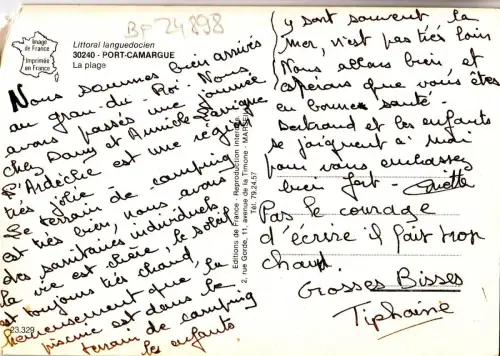 BF 24898
Image
de France
Imprimée
en France
Littoral languedocien
30240 - PORT-CAMARGUE
La plage
Nous sommes bien arrivés
au grau-du-Roi. Nous
avons passés une journée
chez Dany et Annick
L'Ardèche est une région
très jolie.
Le terrain de camping
est très bien, nous avons
des sanitaires individuels,
la vie est chère, le soleil
est toujours très chaud,
heureusement que la
piscine est dans le
terrain de camping
les enfants
y sont souvent la
mer, n'est pas très loin
Nous allons bien et
espérons que vous êtes
en bonne santé.
Bertrand et les enfants
se joignent a moi
pour vous embrasser
bien fort -
Pas le courage
d'écrire il fait trop
chaud.
Grosses Bisses
Tiphaine
Editions de France - Reproduction interdite
2, rue Gorde, 11, avenue de la Timone - MARSEILLE
Tél. 79.24.57
23.329